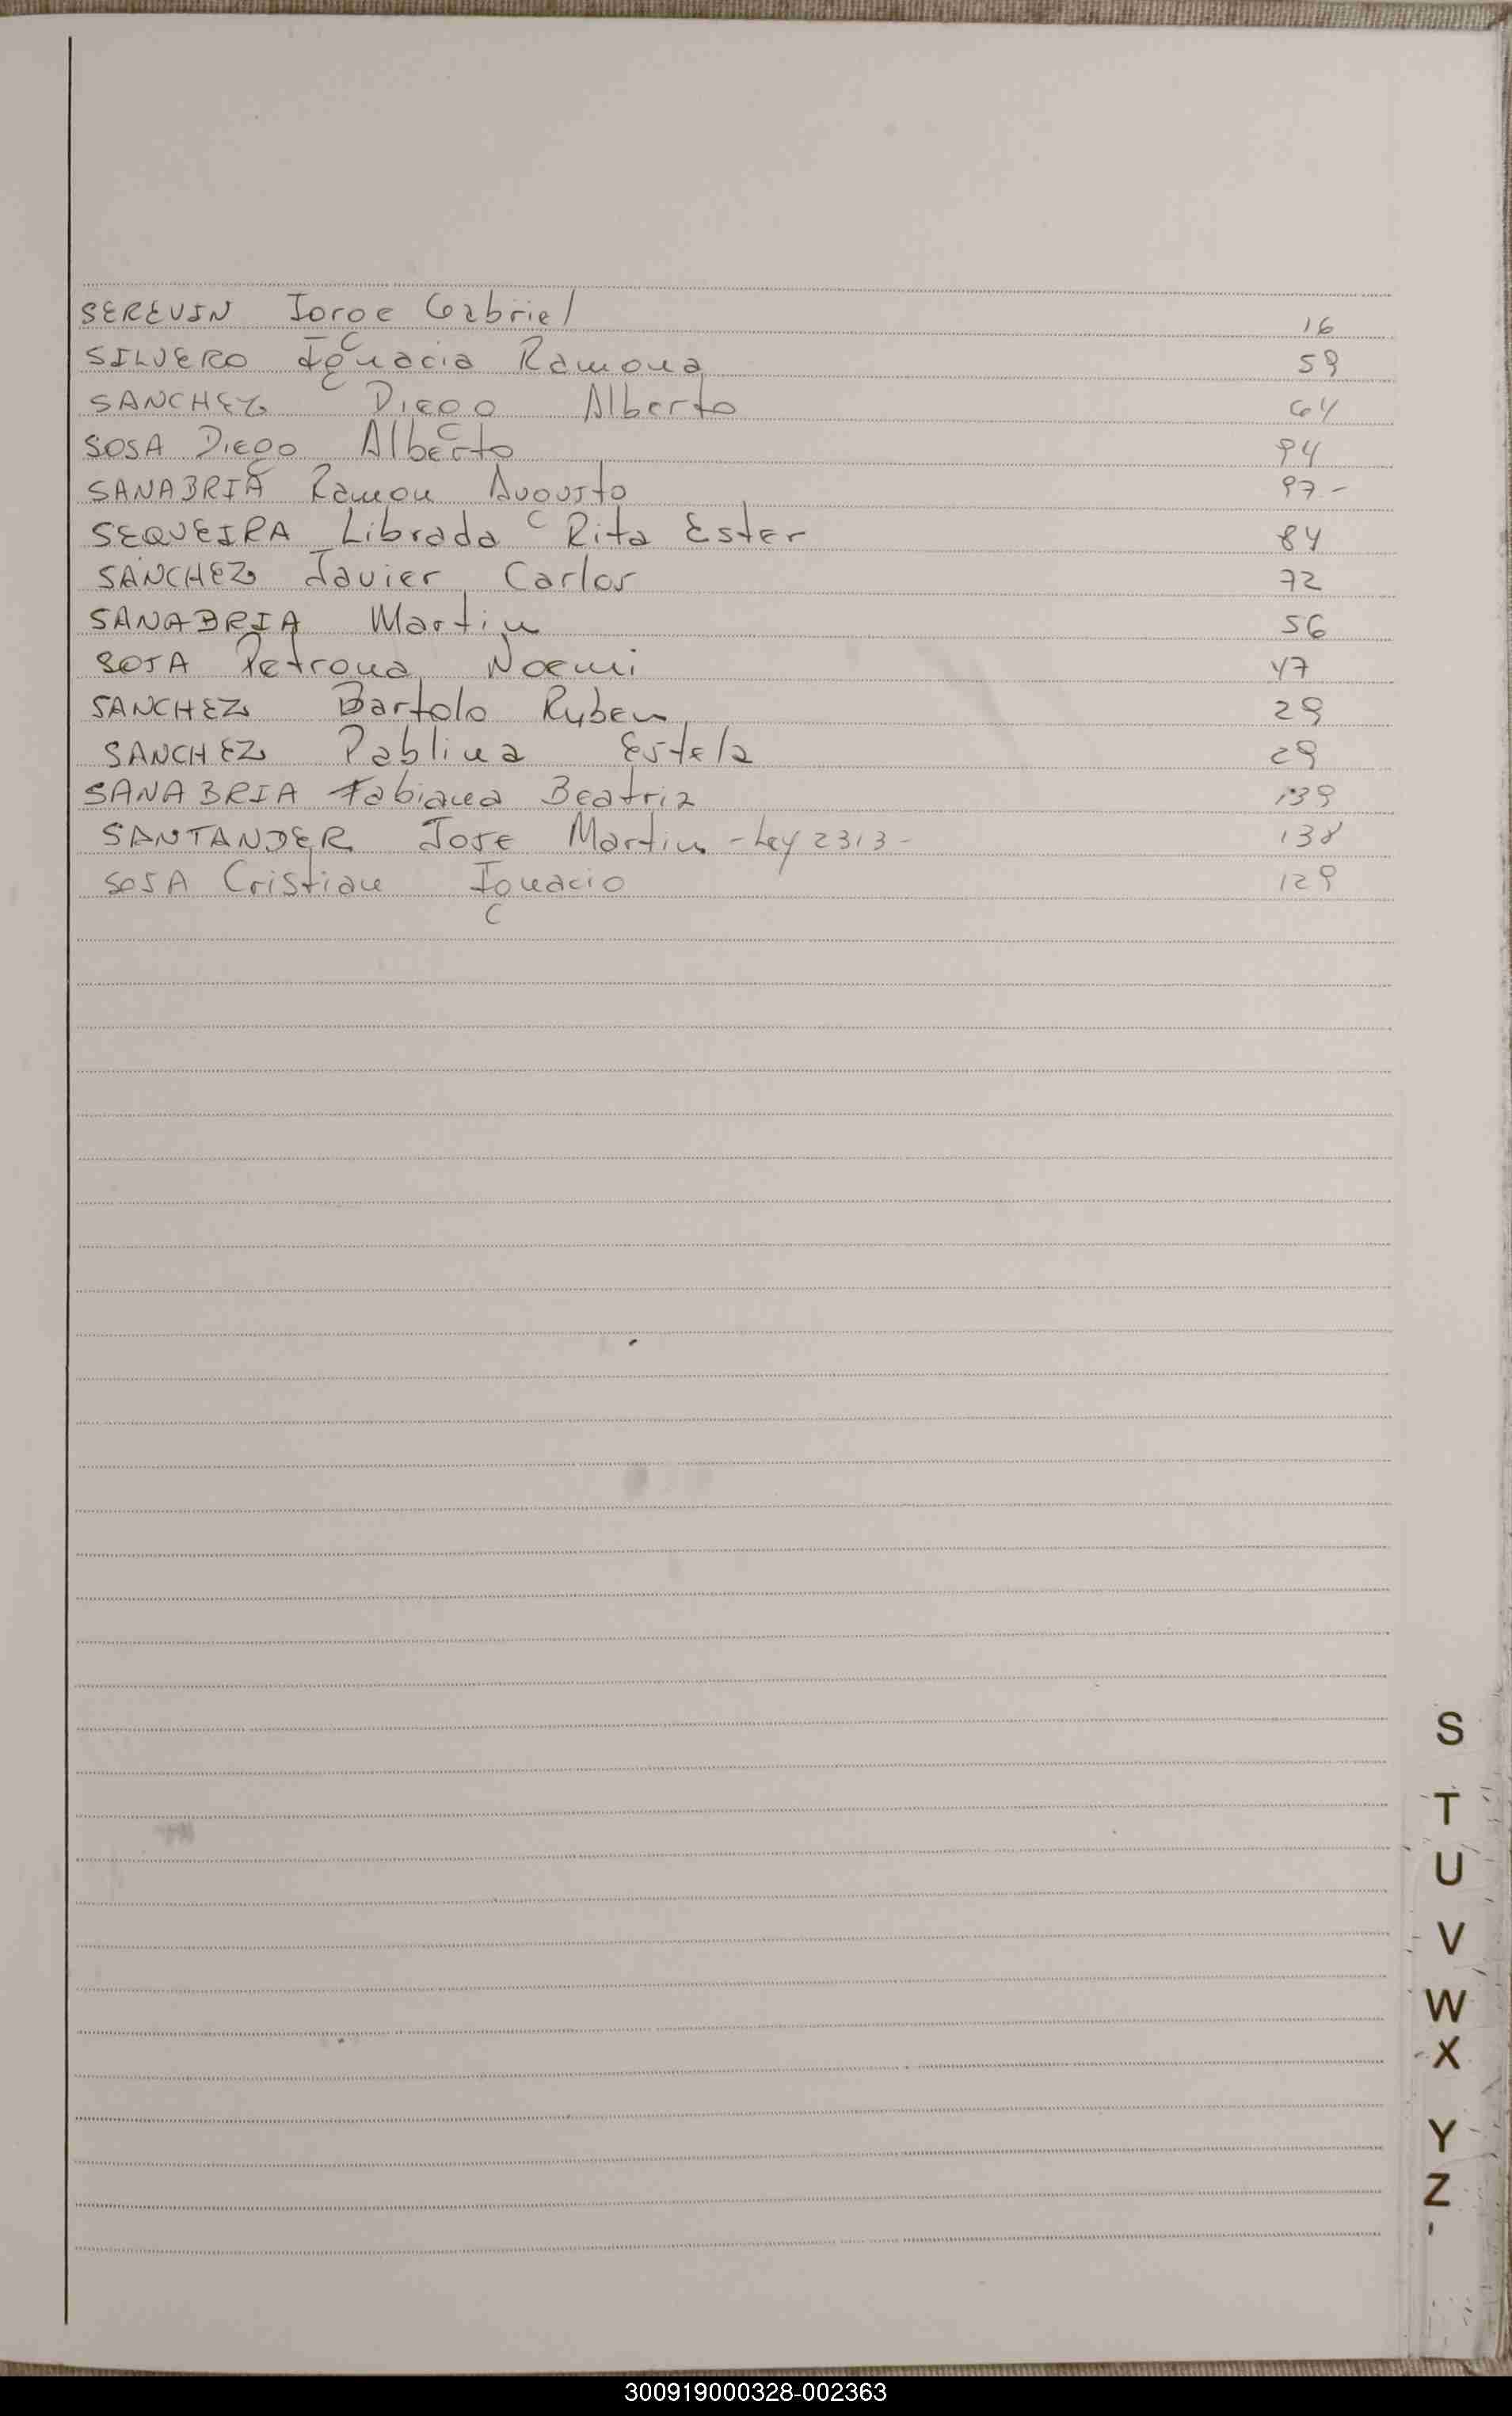 SEREVIN Jorge Gabriel 16
SILVERO Ignacia Ramona 59
SANCHEZ Diego Alberto 64
SOSA Diego Alberto 94
SANABRIA Ramon Augusto 97-
SEQUEIRA Librada Rita Ester 84
SANCHEZ Javier Carlos 72
SANABRIA Martin 56
SOSA Petrona Noemi 47
SANCHEZ Bartolo Ruben 29
SANCHEZ Pablina Estela 29
SANABRIA Fabiana Beatriz 139
SANTANDER Jose Martin - Ley 2313 - 138
SOSA Cristian Ignacio 129
S
T
U
V
W
X
Y
Z
300919000328-002363